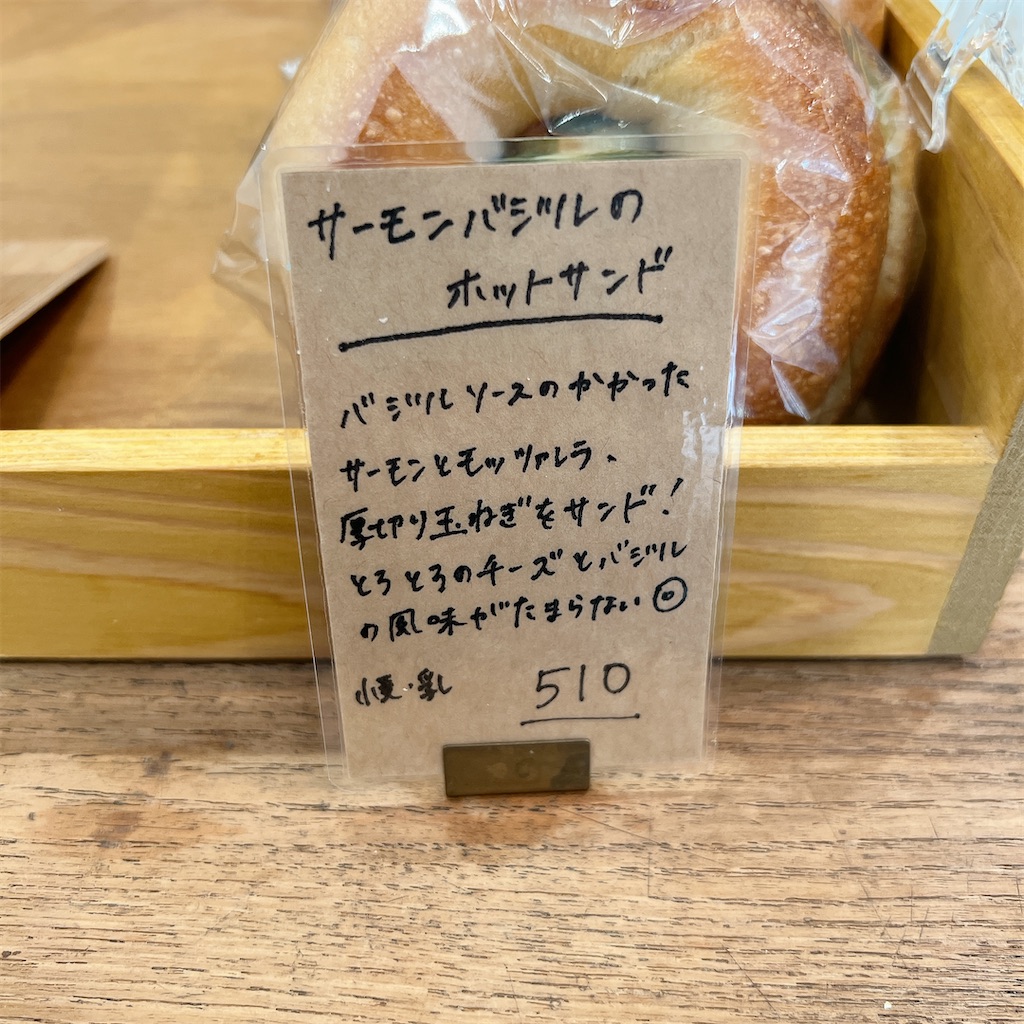 サーモンバジルの
ホットサンド
バジルソースのかかった
サーモンとモッツァレラ、
厚切り玉ねぎをサンド!
とろとろのチーズとバジル
の風味がたまらない◎
小麦・乳
510